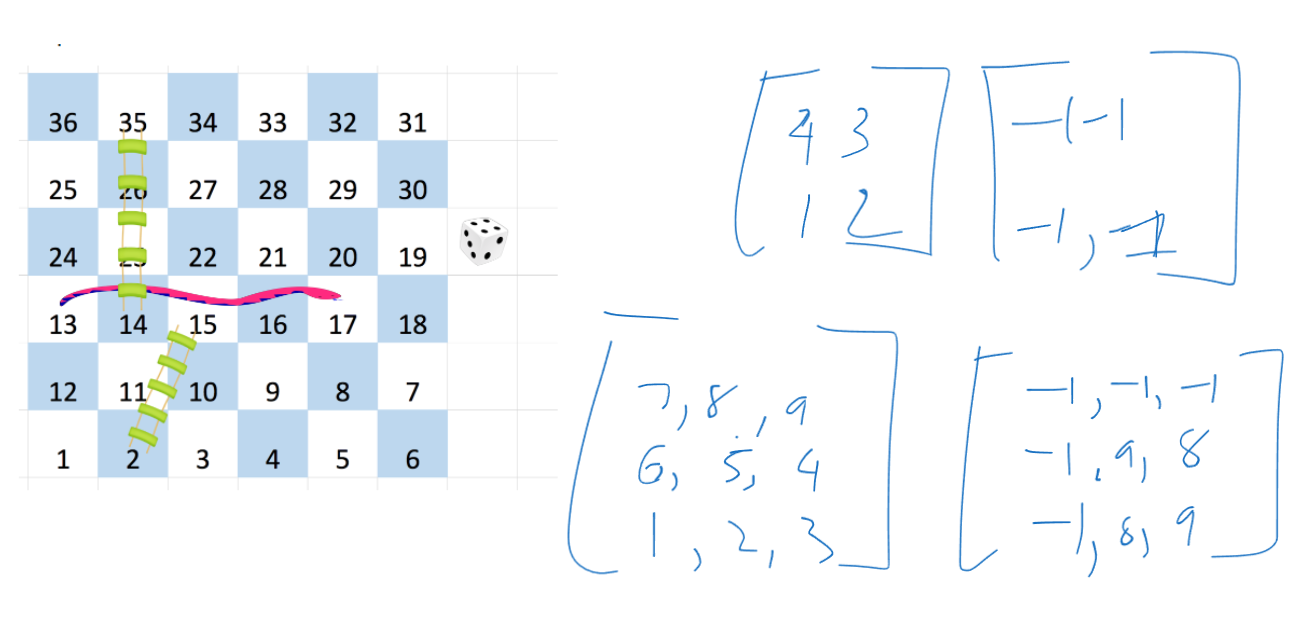 36 35 34 33 32 31
25 26 27 28 29 30
24 23 22 21 20 19
13 14 15 16 17 18
12 11 10 9 8 7
1 2 3 4 5 6
4 3
1 2
-1 -1
-1, -1
7, 8, 9
6, 5, 4
1, 2, 3
-1, -1, -1
-1, 9, 8
-1, 8, 9